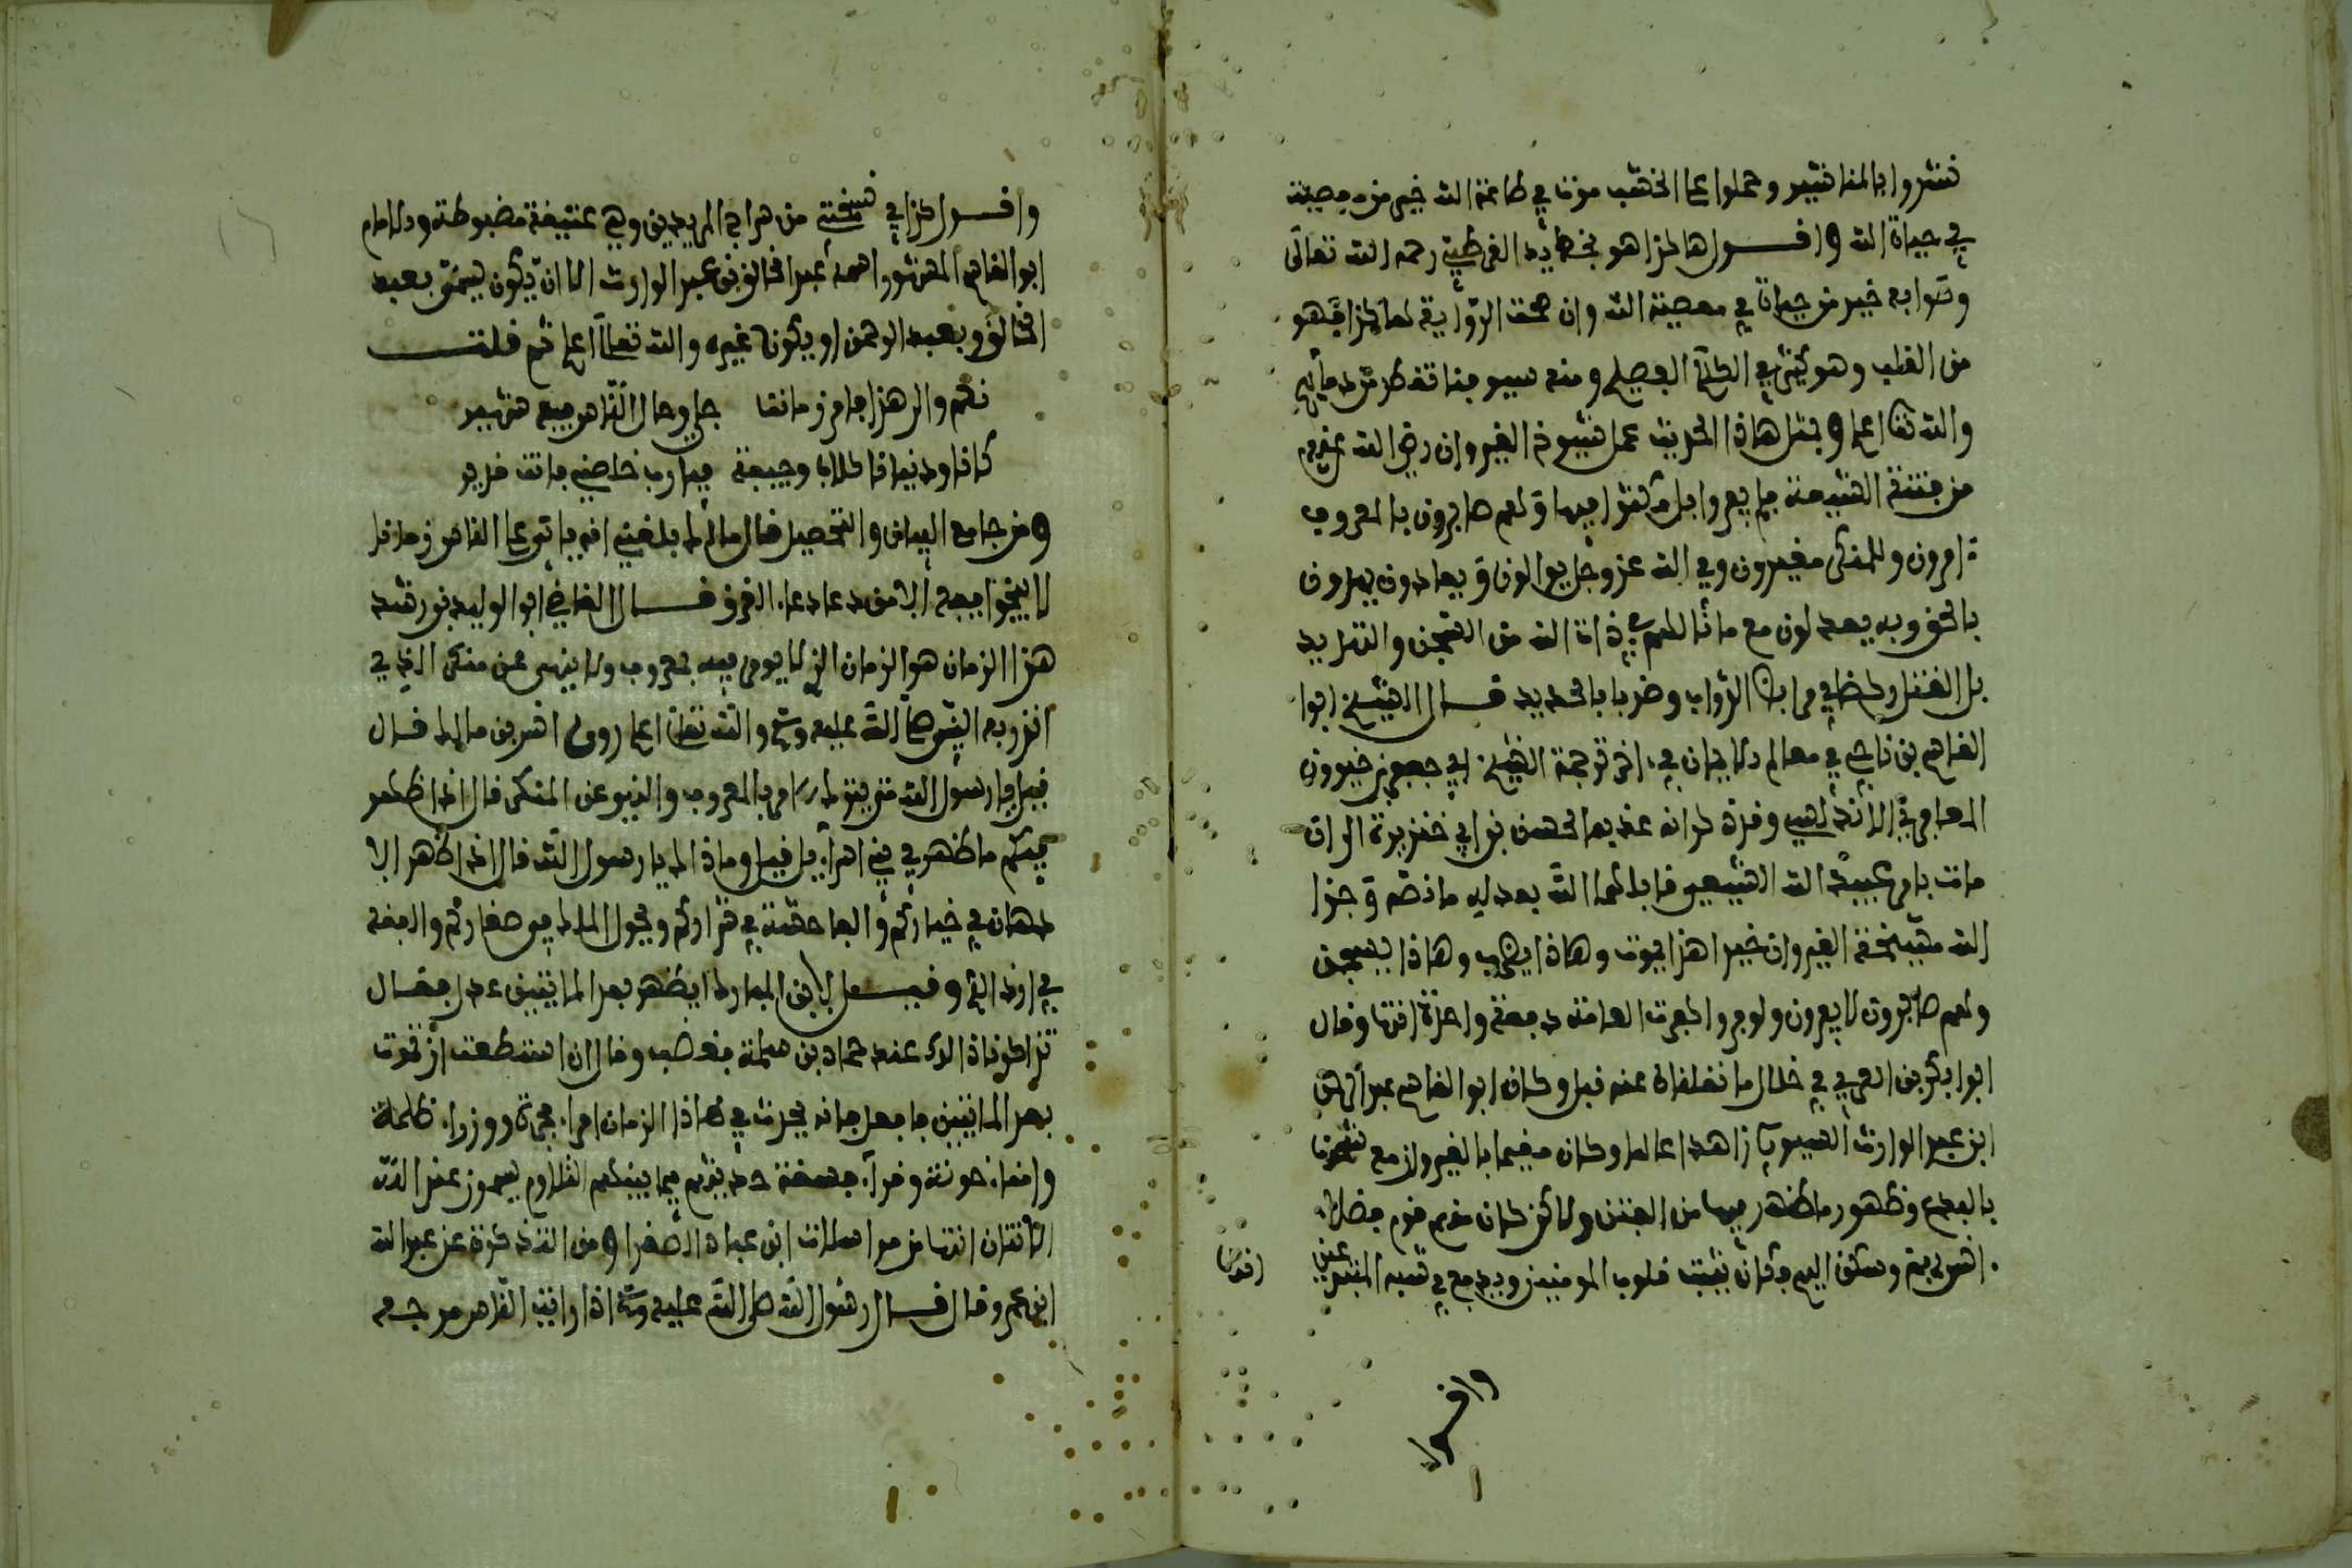 نشروا بالمناشير وحملوا على الخشب موت في طاعة الله خير من معصية
في حياة الله واقول هاكذا هو بخط يد القرطبي رحمه الله تعالى
وصوابه خير من حياة في معصية الله وان صحت الرواية لها كذا فهو
من القلب وهو كثير في الكلام الفصيح ومنه
والله تعا اعلم وبمثل هاذا الحديث عمل شيوخ القيروان رضي الله عنهم
من فتنة الشيعة فلم يفروا بل مكثوا فيها وهم صابرون بالمعروف
ءامرون وللمنكر مغيرون وفي الله عز وجل يوالون ويعادون يهدون
بالحق وبه يعدلون مع ما نالهم في ذات الله من السجن والتهديد
بل القتل ركضا في مرابط الدواب وضربا بالحديد قال الشيخ ابوا
القاسم بن ناجي في معالم الايمان في ءاخر ترجمة الشيخ ابي جعفر بن خيرون
المعافري الاندلسي وقد ذكر انه عذبه الحسن بن ابي خنزيرة الى ان
مات بامر عبيد الله الشيعي قابلهما الله بعدله ما نصه وجزا
الله مشيخة القيروان خيرا هذا يموت وهاذا يضرب وهاذا يسجن
وهم صابرون لا يفرون ولو فروا لكفرت العامة دفعة واحدة انتها وقال
ابوا بكر بن العربي في خلال ما نقلناه عنه قبل وكان ابو القاسم عبد الخالق
ابن عبد الوارث السيوري زاهدا عالما وكان مقيما بالقيروان مع شحنها
بالبدع وظهور ما ظهر فيها من الفتن ولاكن كان منهم قوم فضلاء
انس بهم وسكن اليهم فكان يثبت قلوب المومنين ويدفع في شبه المنبر عين
اقول
واقول
واقول كذا في نسختي من سراج المريدين وهي عتيقة مضبوطة والامام
ابو القاسم المشهور اسمه عبد الخالق بن عبد الوارث الا ان يكون يسمى بعبد
الخالق وبعبد الرحمن او يكون غيره والله تعالى اعلم ثم قلت
نعم والد هذا عام زماننا جلي وحال الناس فيه شهير
كانا ودنيانا كلاب وجيفة فيارب خلصني فانت قدير
ومن جامع البيان والتحصيل قال مالك بلغني انه ياتي على الناس زمان
لا ينجوا فيه الا من دعا دعاء الغرق قال القاضي ابو الوليد بن رشد
هذا الزمان هو الزمان الذي لا يومر فيه بمعروف ولا ينهى عن منكر الذي
انذر به النبي صلى الله عليه وسلم والله تعالى اعلم روى انس بن مالك قال
قيل يا رسول الله متى يترك الامر بالمعروف والنهي عن المنكر قال اذا ظهر
فيكم ما ظهر في بني اسراءيل قيل وما ذاك يا رسول الله قال اذا ظهر الا
دهان في خياركم والفاحشة في شراركم وتحول الملك في صغاركم والفقه
في ارذالكم وقيل لابن المبارك ايظهر بعد المايتين عدل فقال
تذاكرنا ذالك عند حماد بن سلمة فغضب وقال ان استطعت ان تموت
بعد المايتين فافعل فانه يحدث في هاذا الزمان امراء فجرة ووزراء ظلمة
وامناء خونة وقراء فسقة حديثهم فيما بينهم التلاوم يسمون عند الله
الانتان انتها من مراسلات ابن عباد الصغرا ومن التذكرة عن عبد الله
ابن عمر وقال قال رسول الله صلى الله عليه وسلم اذا رايت الناس مرجت